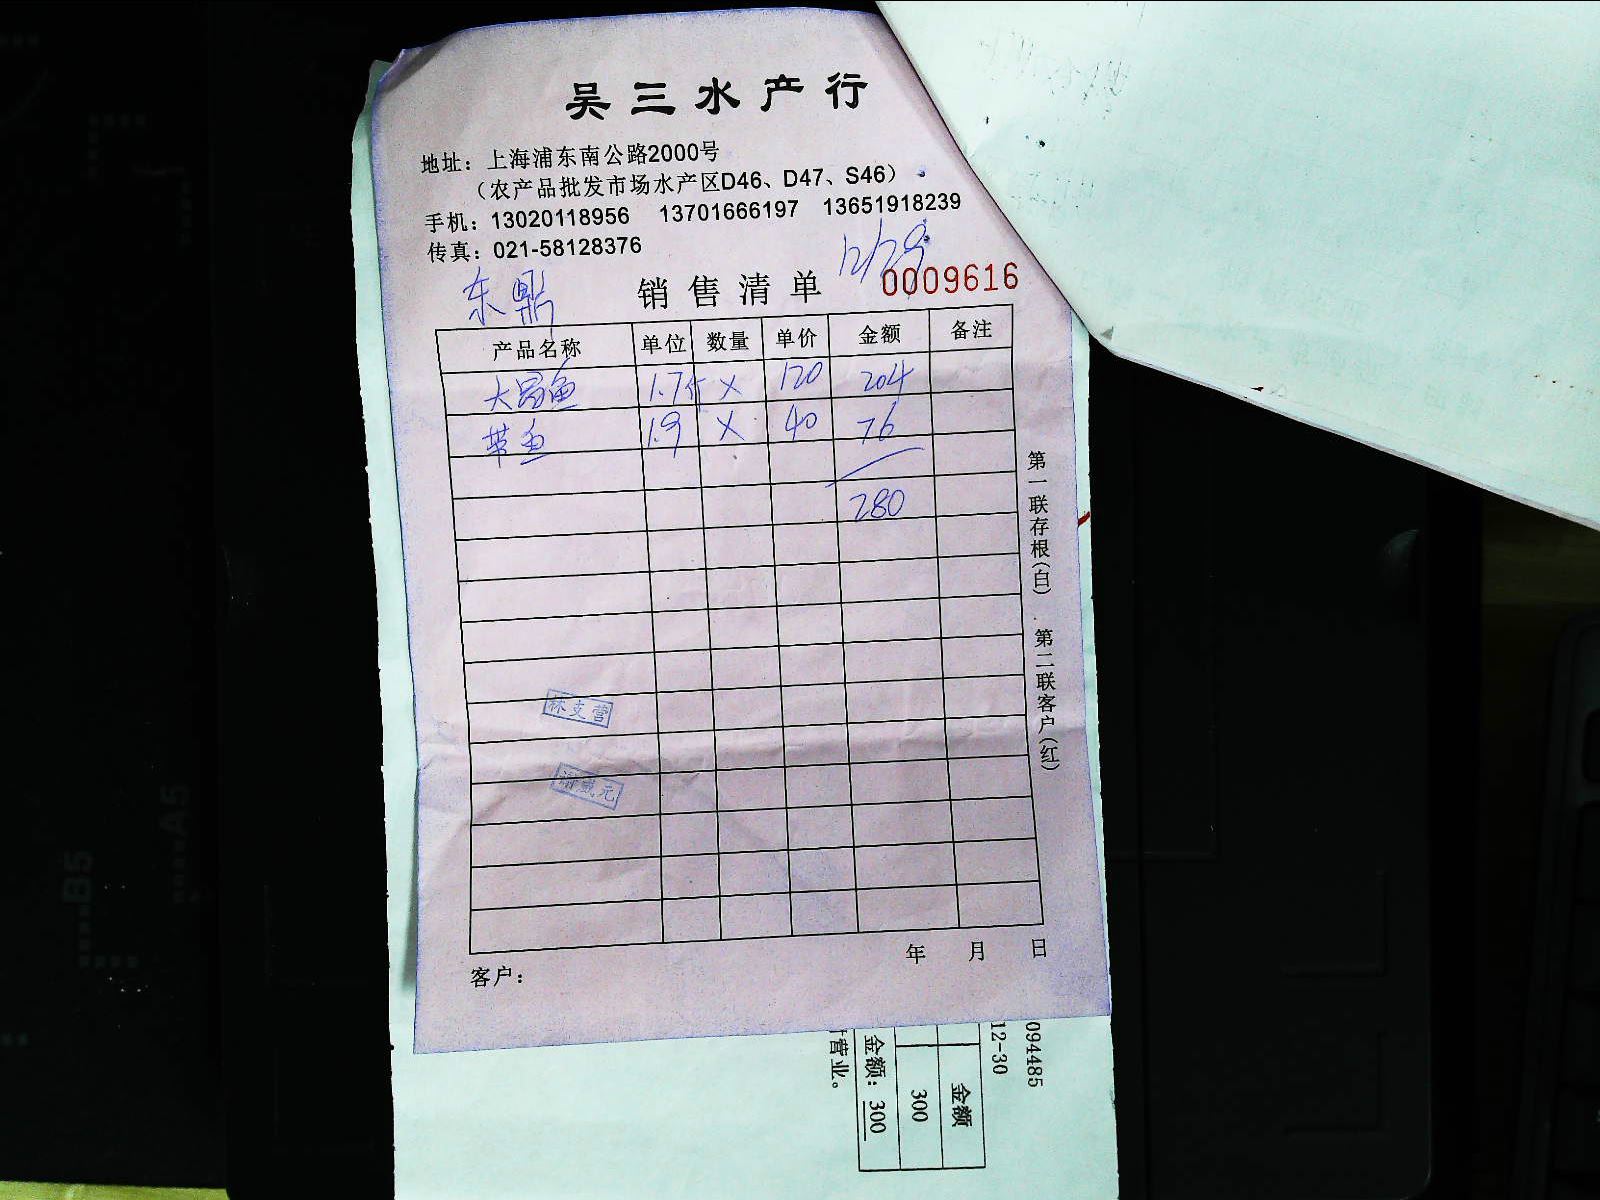 吴三水产行
地址：上海浦东南公路2000号
（农产品批发市场水产区D46、D47、S46）
手机：13020118956 13701666197 13651918239
传真：021-58128376
12/29
东鼎
销售清单 0009616
产品名称 单位 数量 单价 金额 备注
大昌鱼 1.7斤 X 120 204
带鱼 1.9 X 40 76
280
第一联存根（白） 第二联客户（红）
林支营
年 月 日
客户：
094485
12-30
金额
300
金额：300
营业。
B5
A5